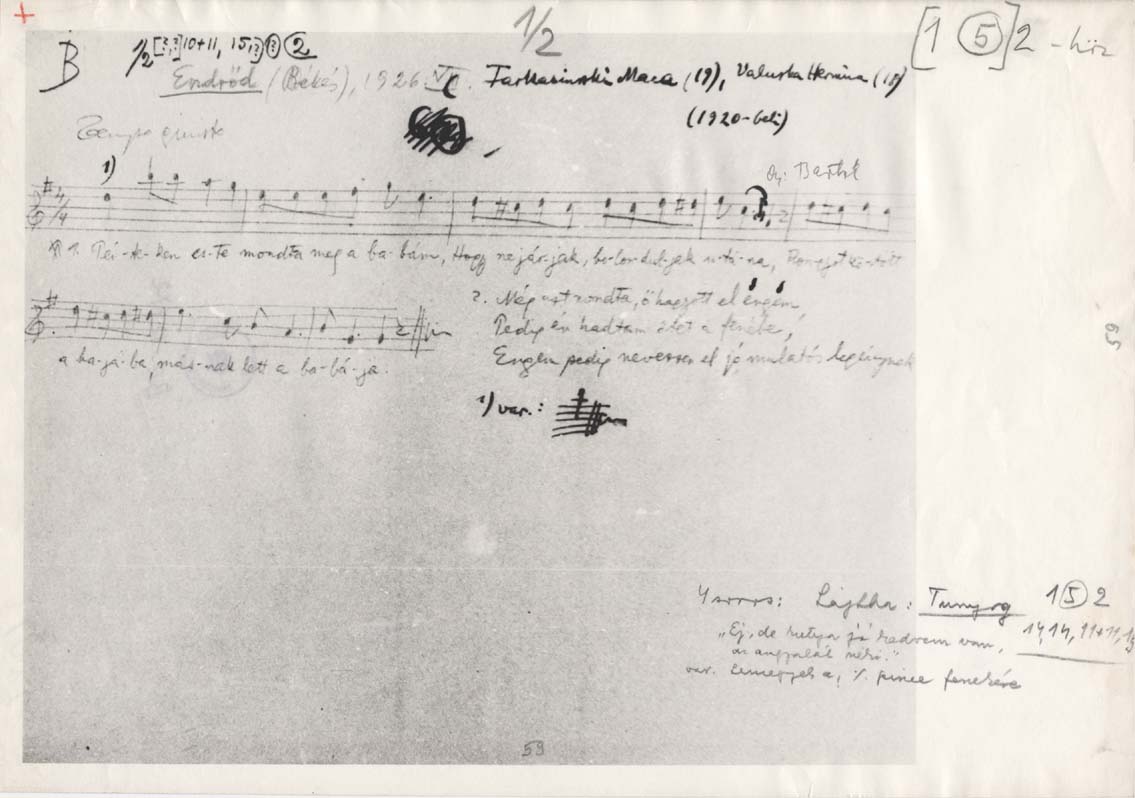 1/2
[1 (5)] 2 - höz
B
10+11, 15, (2)
Endrőd (Békés), 1926. Farkasinszki Maca (19), Valuska Hermina (18)
(1920-beli)
Tempo giusto
Gy: Bartók
1)
4/4
1. Pén-te-ken es-te mondta meg a ba-bám, Hogy ne jár-jak, bo-lon-dul-jak u-tá-na, Rongyot kö-tött
a ba-já-ba, más-nak lett a ba-bá-ja.
2. Még azt mondta, ő hagyott el engem,
Pedig én hadtam őtet a fenébe,
Engem pedig neveznek el jó mulatós legénynek
1) var.:
59
4 soros: Lajtha: Tunyog 1 (5) 2
14, 14, 11+11, 13
"Ej, de kutya jó kedvem van,
az angyalát neki."
var. Lemegyek a pince fenekére
59